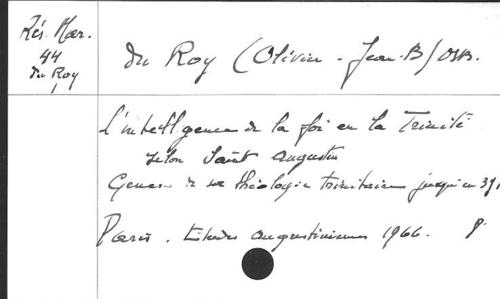 Rés. Mar.
44
du Roy
1
du Roy (Olivier - Jean-B) OSB.
L'intelligence de la foi en la Trinité
selon Saint Augustin
Genèse de sa théologie trinitaire jusqu'en 391
Paris. Etudes augustiniennes 1966.